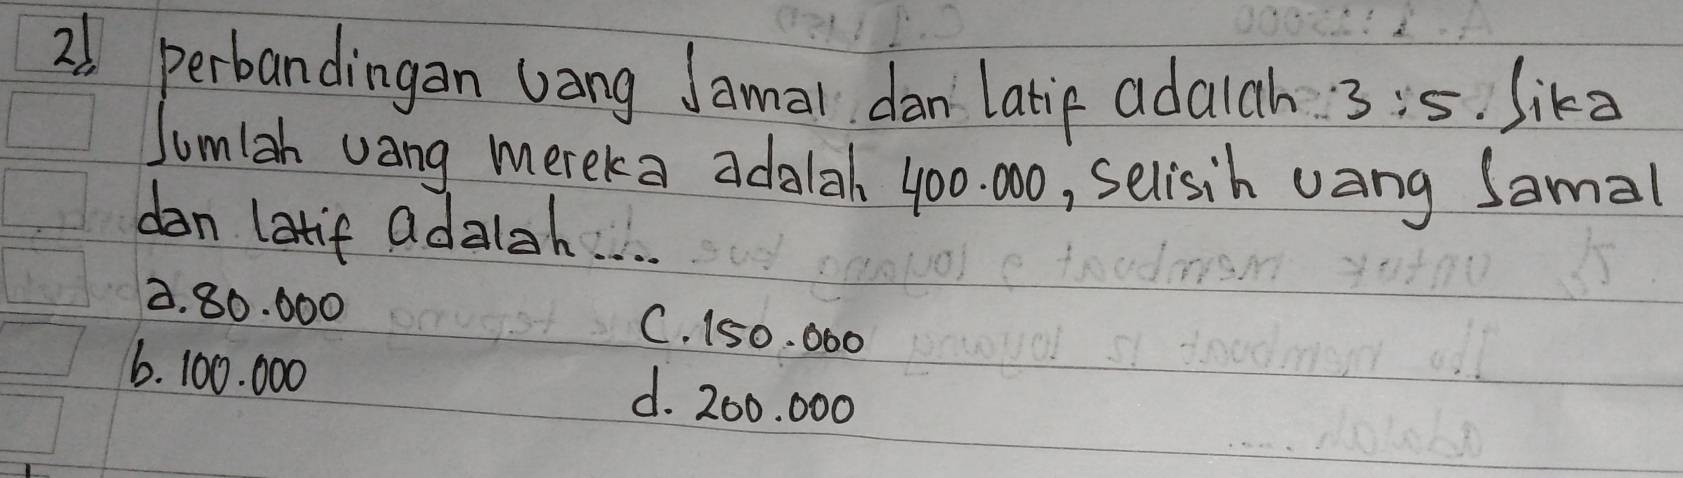 2) perbandingan uang Jamal dan latif adalah 3:5. Jika
Jumlah uang mereka adalah 400.000, selisih uang Jamal
dan latif adalah.....
a. 80.000
c. 150.000
b. 100.000
d. 200.000